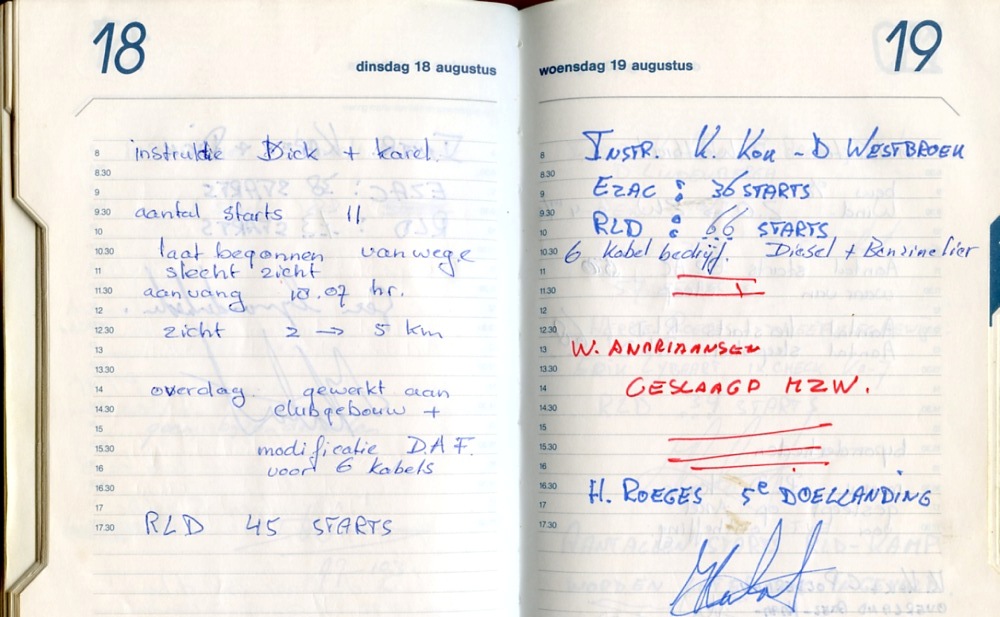 18
dinsdag 18 augustus
8 instruktie Dick + Karel.
8.30
9
9.30 aantal starts 11
10
10.30 laat begonnen vanwege
11 slecht zicht
11.30 aanvang 10.07 hr.
12
12.30 zicht 2 → 5 km
13
13.30
14 overdag gewerkt aan
14.30 clubgebouw +
15
15.30 modificatie D.A.F.
16 voor 6 kabels
16.30
17
17.30 RLD 45 STARTS
19
woensdag 19 augustus
8 INSTR. K. KOK - D WESTBROEK
8.30
9 EZAC : 36 STARTS
9.30
10 RLD : 66 STARTS
10.30 6 Kabel bedrijf. Diesel + Benzinelier
11
11.30
12
12.30
13 W. ANDRIAANSEN
13.30
14 GESLAAGD MZW.
14.30
15
15.30
16
16.30 H. ROEGES 5e DOELLANDING
17
17.30